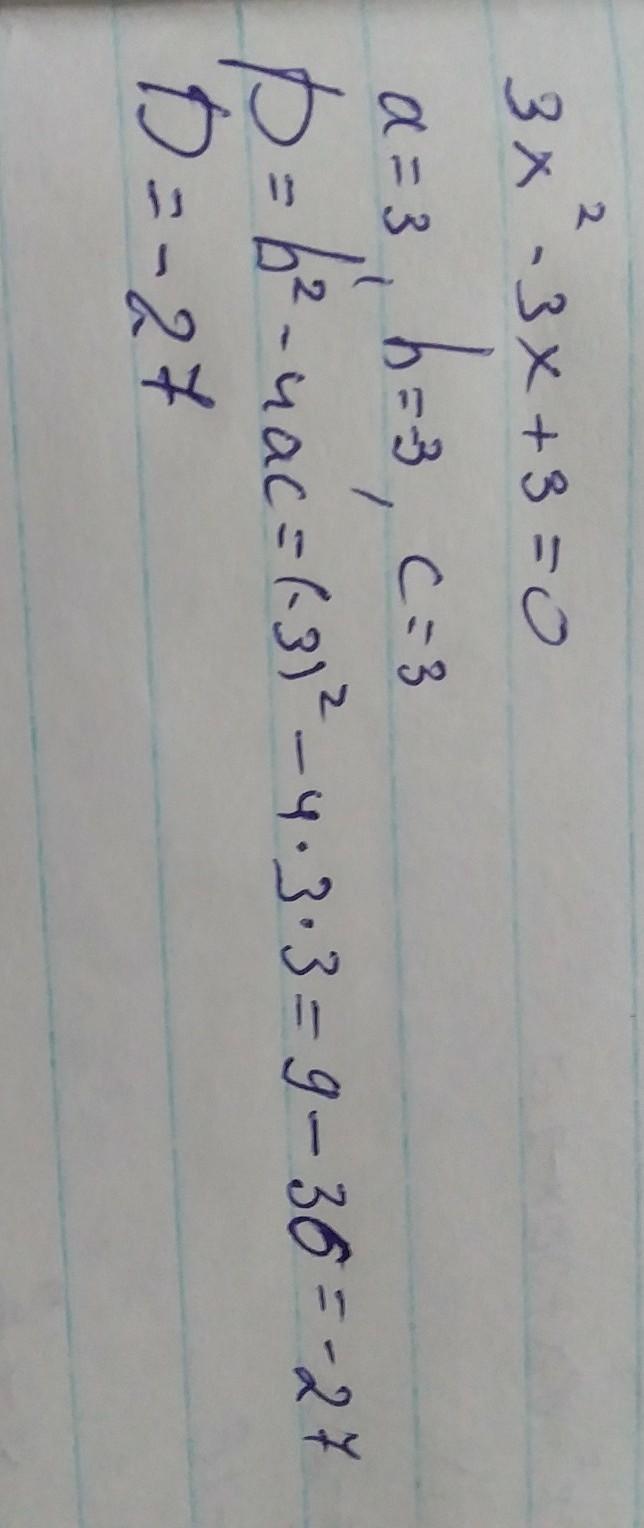 3x² - 3x + 3 = 0
a = 3, b = -3, c = 3
D = b² - 4ac = (-3)² - 4·3·3 = 9 - 36 = -27
D = -27